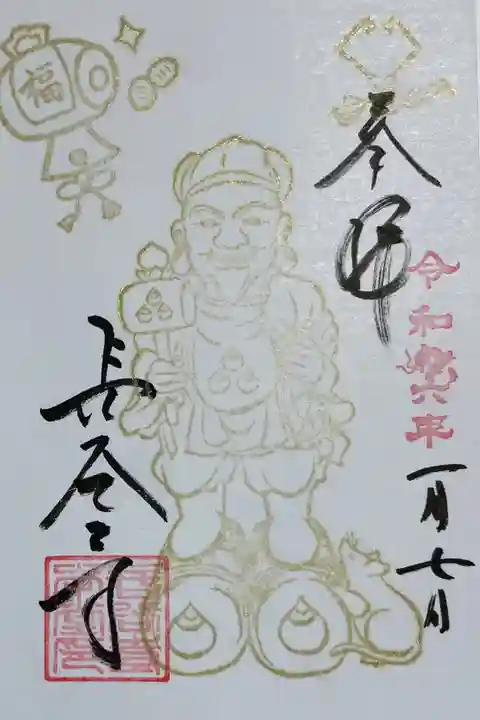 福
奉拝
令和六年
一月七日
長全寺